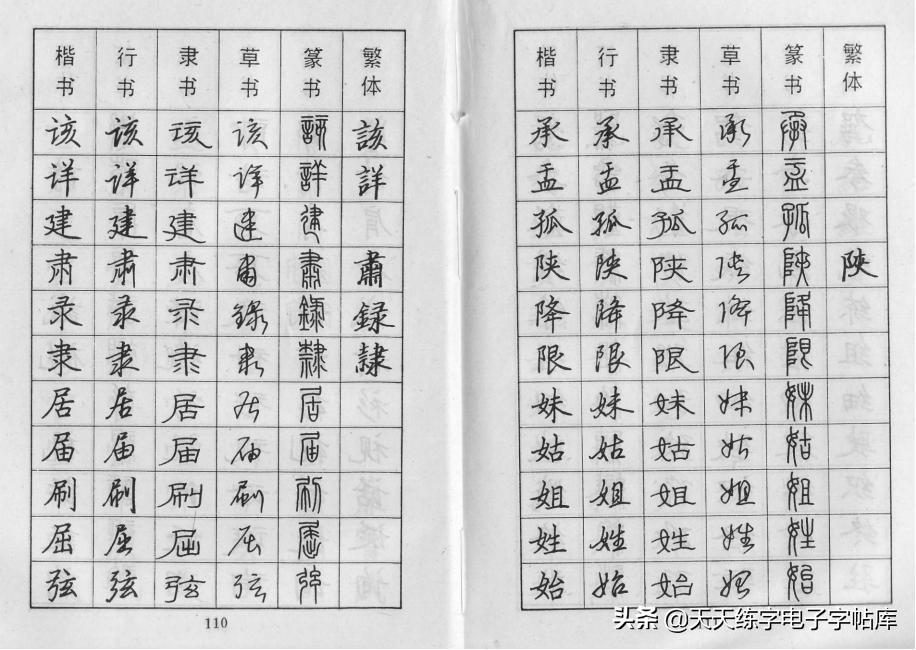 楷书 行书 隶书 草书 篆书 繁体
该 该 该 该 該 該
详 详 详 详 詳 詳
建 建 建 建 建
肃 肃 肃 肅 肅 肅
录 录 录 録 録 録
隶 隶 隶 隶 隸 隸
居 居 居 居 居
届 届 届 届 届
刷 刷 刷 刷 刷
屈 屈 屈 屈 屈
弦 弦 弦 弦 弦
110
楷书 行书 隶书 草书 篆书 繁体
承 承 承 承 承
孟 孟 孟 孟 孟
孤 孤 孤 孤 孤
陕 陕 陕 陕 陝 陝
降 降 降 降 降
限 限 限 限 限
妹 妹 妹 妹 妹
姑 姑 姑 姑 姑
姐 姐 姐 姐 姐
姓 姓 姓 姓 姓
始 始 始 始 始
头条 @天天练字电子字帖库